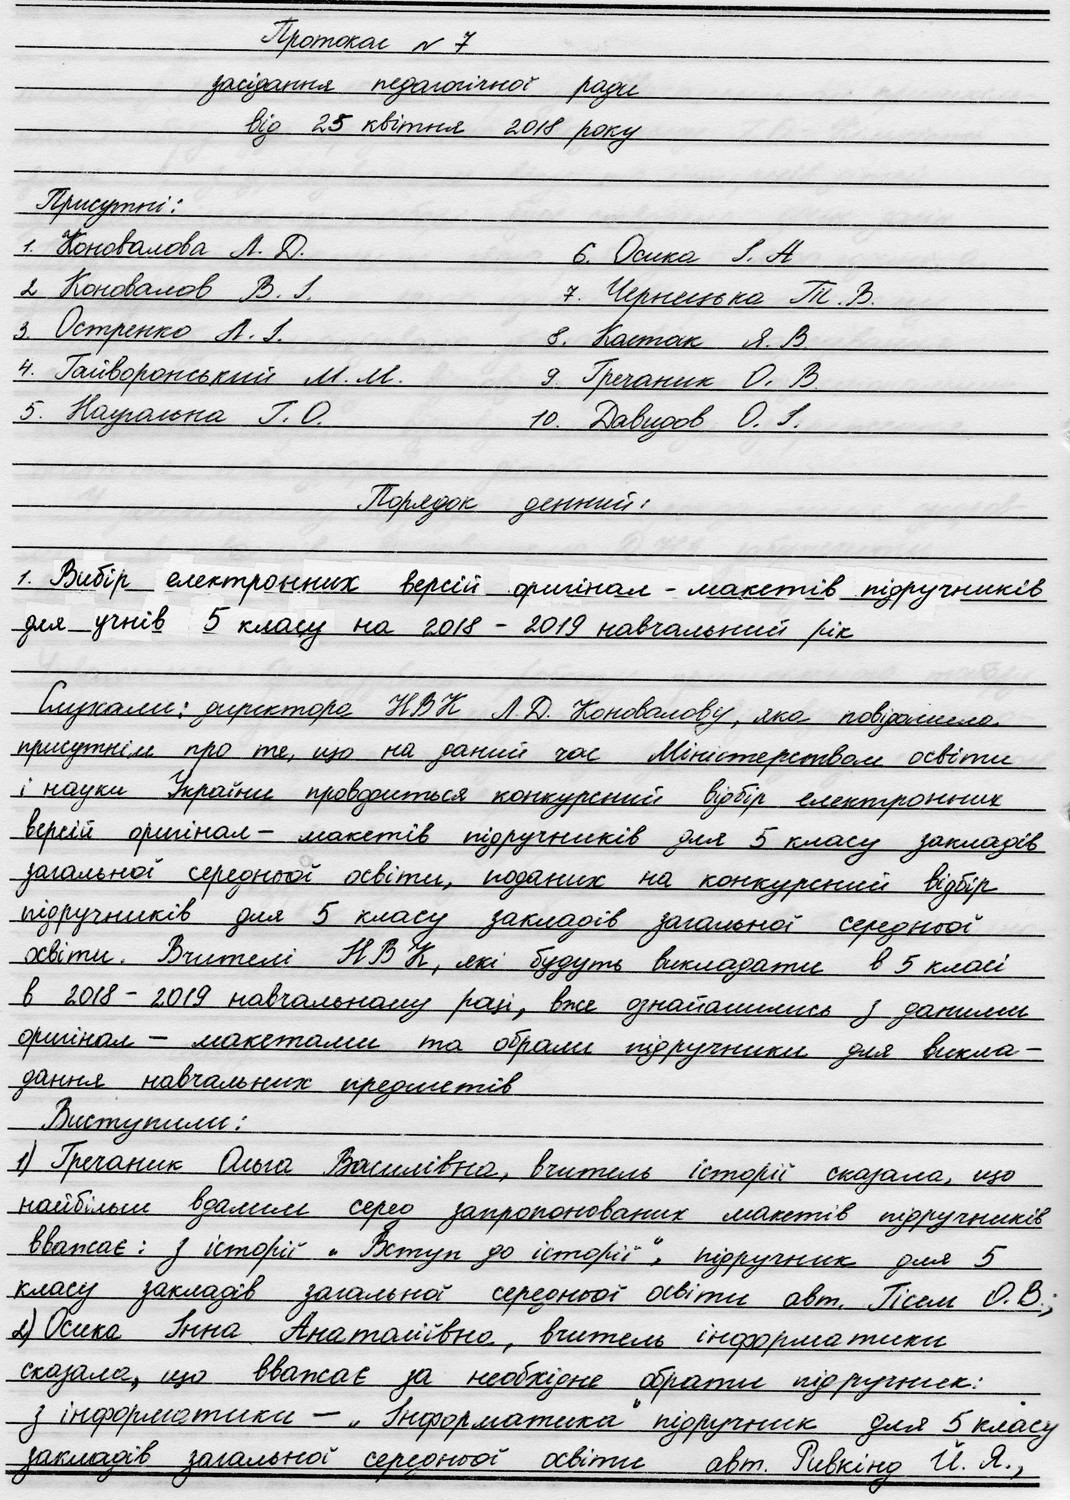 Протокол № 7
засідання педагогічної ради
від 25 квітня 2018 року
Присутні:
1. Коновалова Л. Д.
2 Коновалов В. І.
3. Остренко Л. І.
4. Гайворонський М. М.
5. Нагальна Г. О.
6. Осика І. А
7. Чернецька Т. В.
8. Костак Я. В
9. Гречаник О. В
10. Давидов О. І.
Порядок денний:
1. Вибір електронних версій оригінал - макетів підручників
для учнів 5 класу на 2018 - 2019 навчальний рік
Слухали: директора НВК Л.Д. Коновалову, яка повідомила
присутнім про те, що на даний час Міністерством освіти
і науки України проводиться конкурсний відбір електронних
версій оригінал - макетів підручників для 5 класу закладів
загальної середньої освіти, поданих на конкурсний відбір
підручників для 5 класу закладів загальної середньої
освіти. Вчителі НВК, які будуть викладати в 5 класі
в 2018 - 2019 навчальному році, вже ознайомились з даними
оригінал - макетами та обрали підручники для викла-
дання навчальних предметів
Виступили:
1) Гречаник Ольга Василівна, вчитель історії сказала, що
найбільш вдалим серед запропонованих макетів підручників
вважає: з історії „Вступ до історії“, підручник для 5
класу закладів загальної середньої освіти авт. Гісем О.В.;
2) Осика Інна Анатоліївна, вчитель інформатики
сказала, що вважає за необхідне обрати підручник:
з інформатики - „Інформатика“ підручник для 5 класу
закладів загальної середньої освіти авт. Ривкінд Й. Я.,